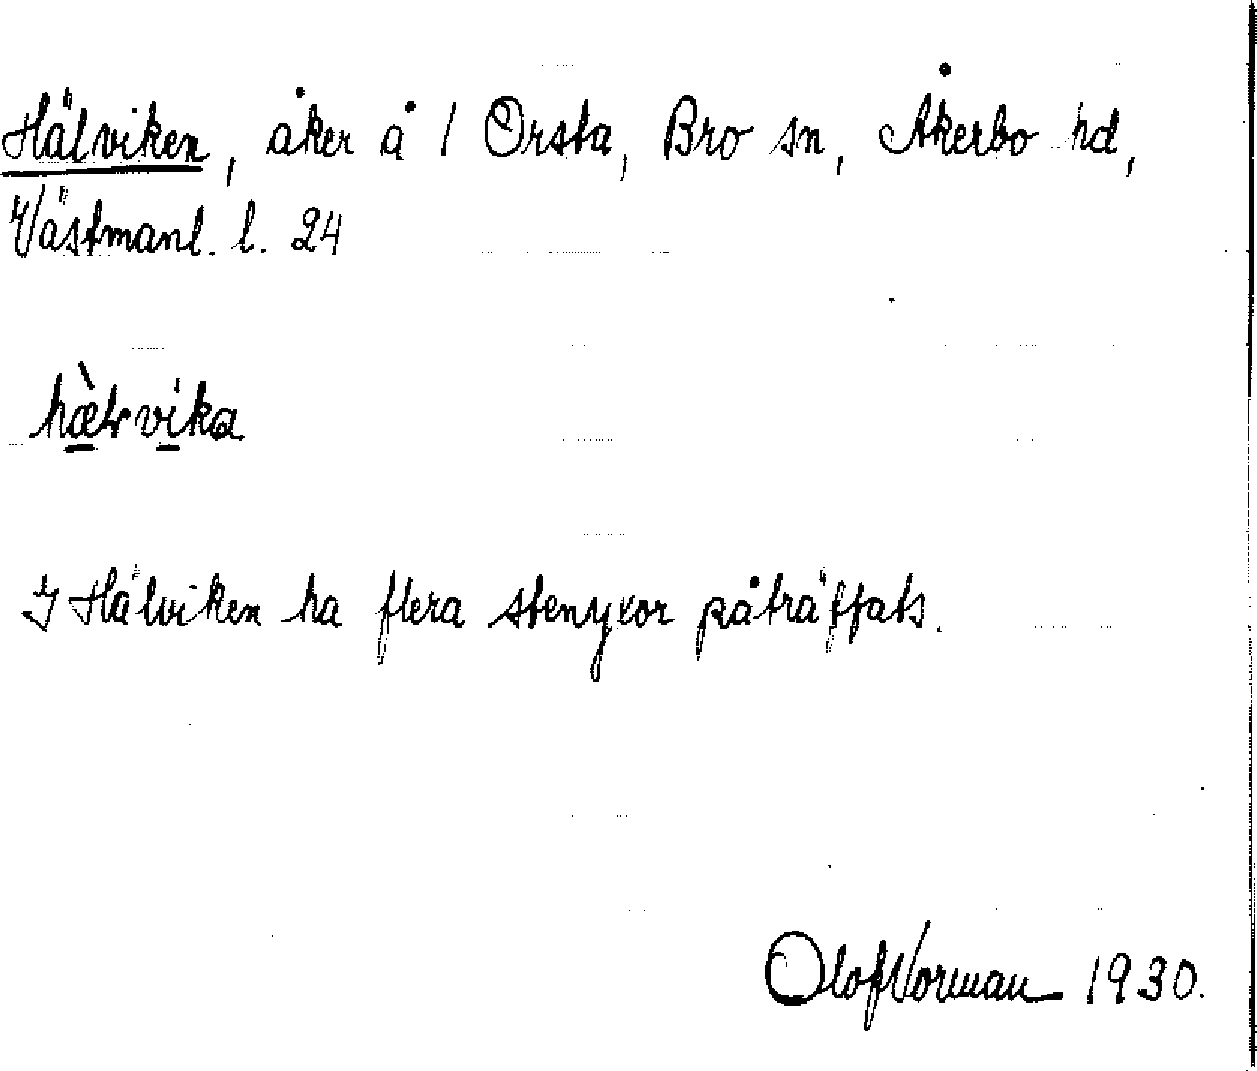 Hälviken, åker å 1 Orsta, Bro sn, Åkerbo hd,
Västmanl. l. 24
hæ̀lvika
I Hälviken ha flera stenyxor påträffats.
Olof Norman 1930.